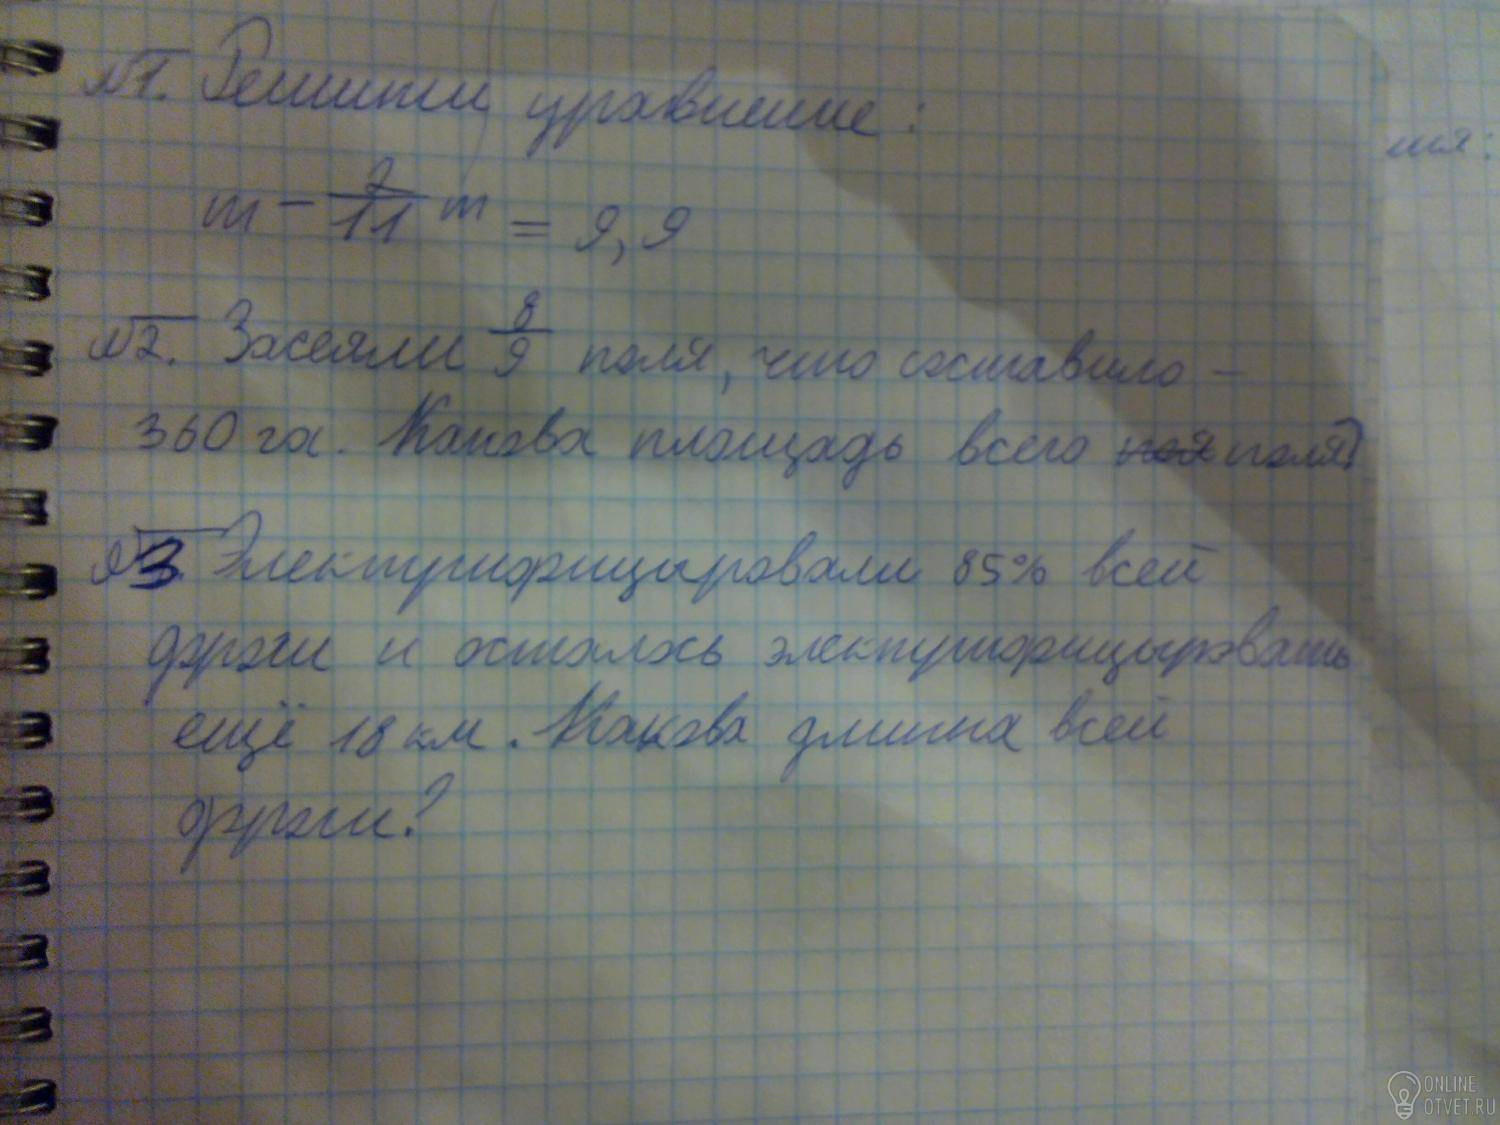 №1. Решити уравнение:
m - 2/11 m = 9,9
№2. Засеяли 8/9 поля, что составило -
360 га. Какова площадь всего поля?
№3. Электрифицыровали 85% всей
дороги и осталось электрифицыровать
ещё 18 км. Какова длина всей
дороги?
ия:
ONLINE
OTVET.RU